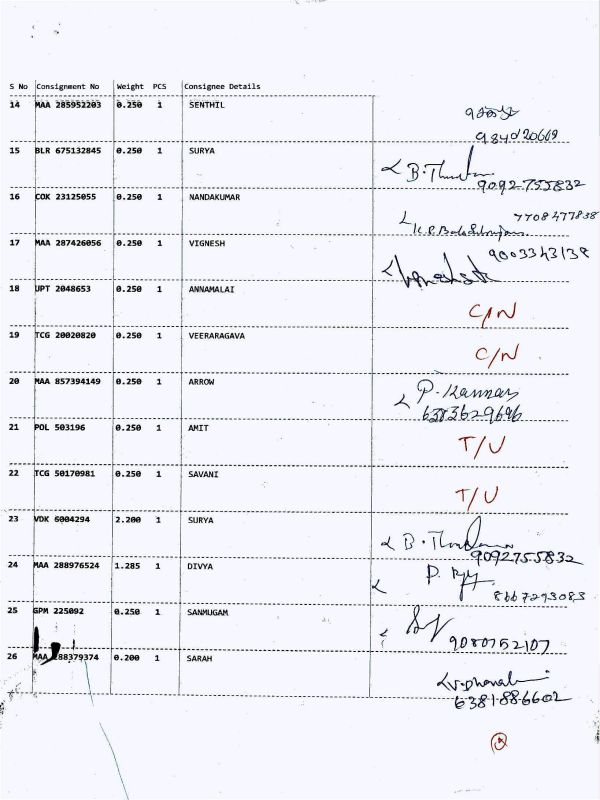 S No Consignment No Weight PCS Consignee Details
14 MAA 285952203 0.250 1 SENTHIL
15 BLR 675132845 0.250 1 SURYA
B. 
9092755832
16 COK 23125055 0.250 1 NANDAKUMAR
7708477838
17 MAA 287426056 0.250 1 VIGNESH
9003343138
18 UPT 2048653 0.250 1 ANNAMALAI
C/N
19 TCG 20020820 0.250 1 VEERARAGAVA
C/N
20 MAA 857394149 0.250 1 ARROW
P. Kannan
6383629696
21 POL 503196 0.250 1 AMIT
T/U
22 TCG 50170981 0.250 1 SAVANI
T/U
23 VDK 6004294 2.200 1 SURYA
B. 
9092755832
24 MAA 288976524 1.285 1 DIVYA
8667293083
25 GPM 225092 0.250 1 SANMUGAM
9080752107
26 MAA 288379374 0.200 1 SARAH
6381886602